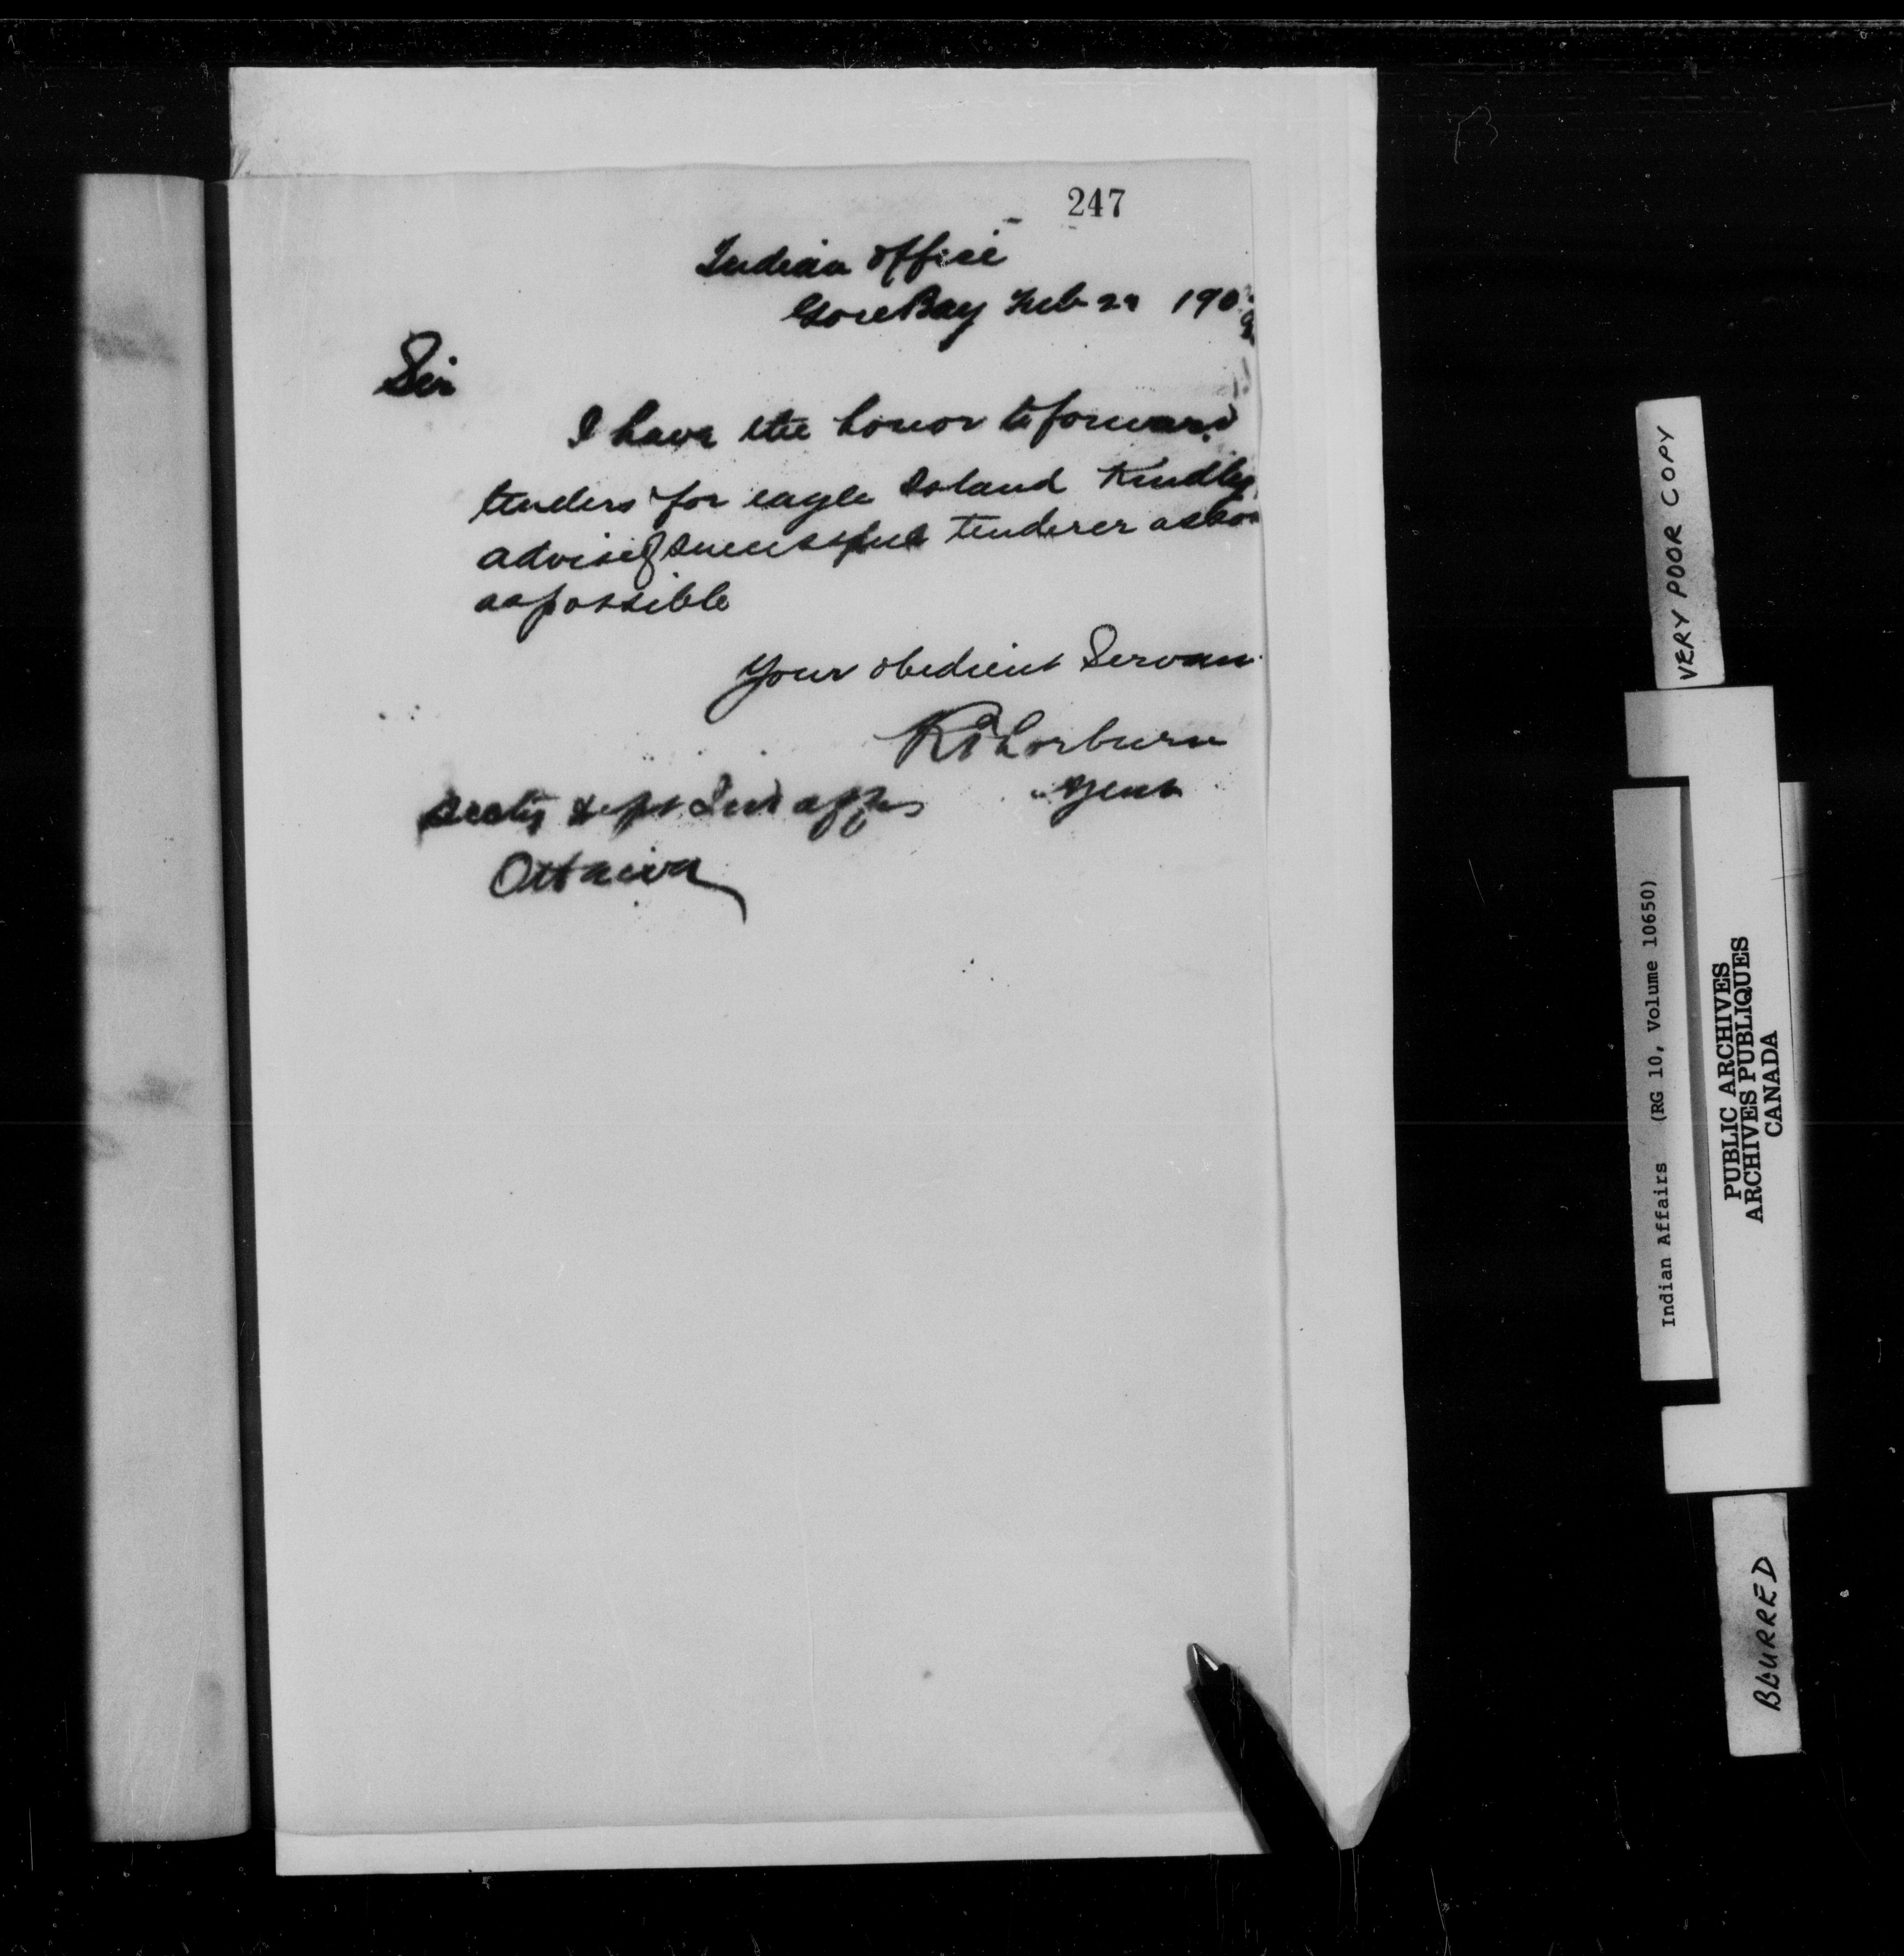 247
Indian Office
Gore Bay Feb 190
Sir
I have the honor to forward
tenders for eagle Island Kindly
advise of successful tenderer as soon
as possible
Your obedient Servan
R Thorburn
Agent
Secty Dept Ind affrs
Ottawa
VERY POOR COPY
Indian Affairs (RG 10, Volume 10650)
PUBLIC ARCHIVES
ARCHIVES PUBLIQUES
CANADA
BLURRED